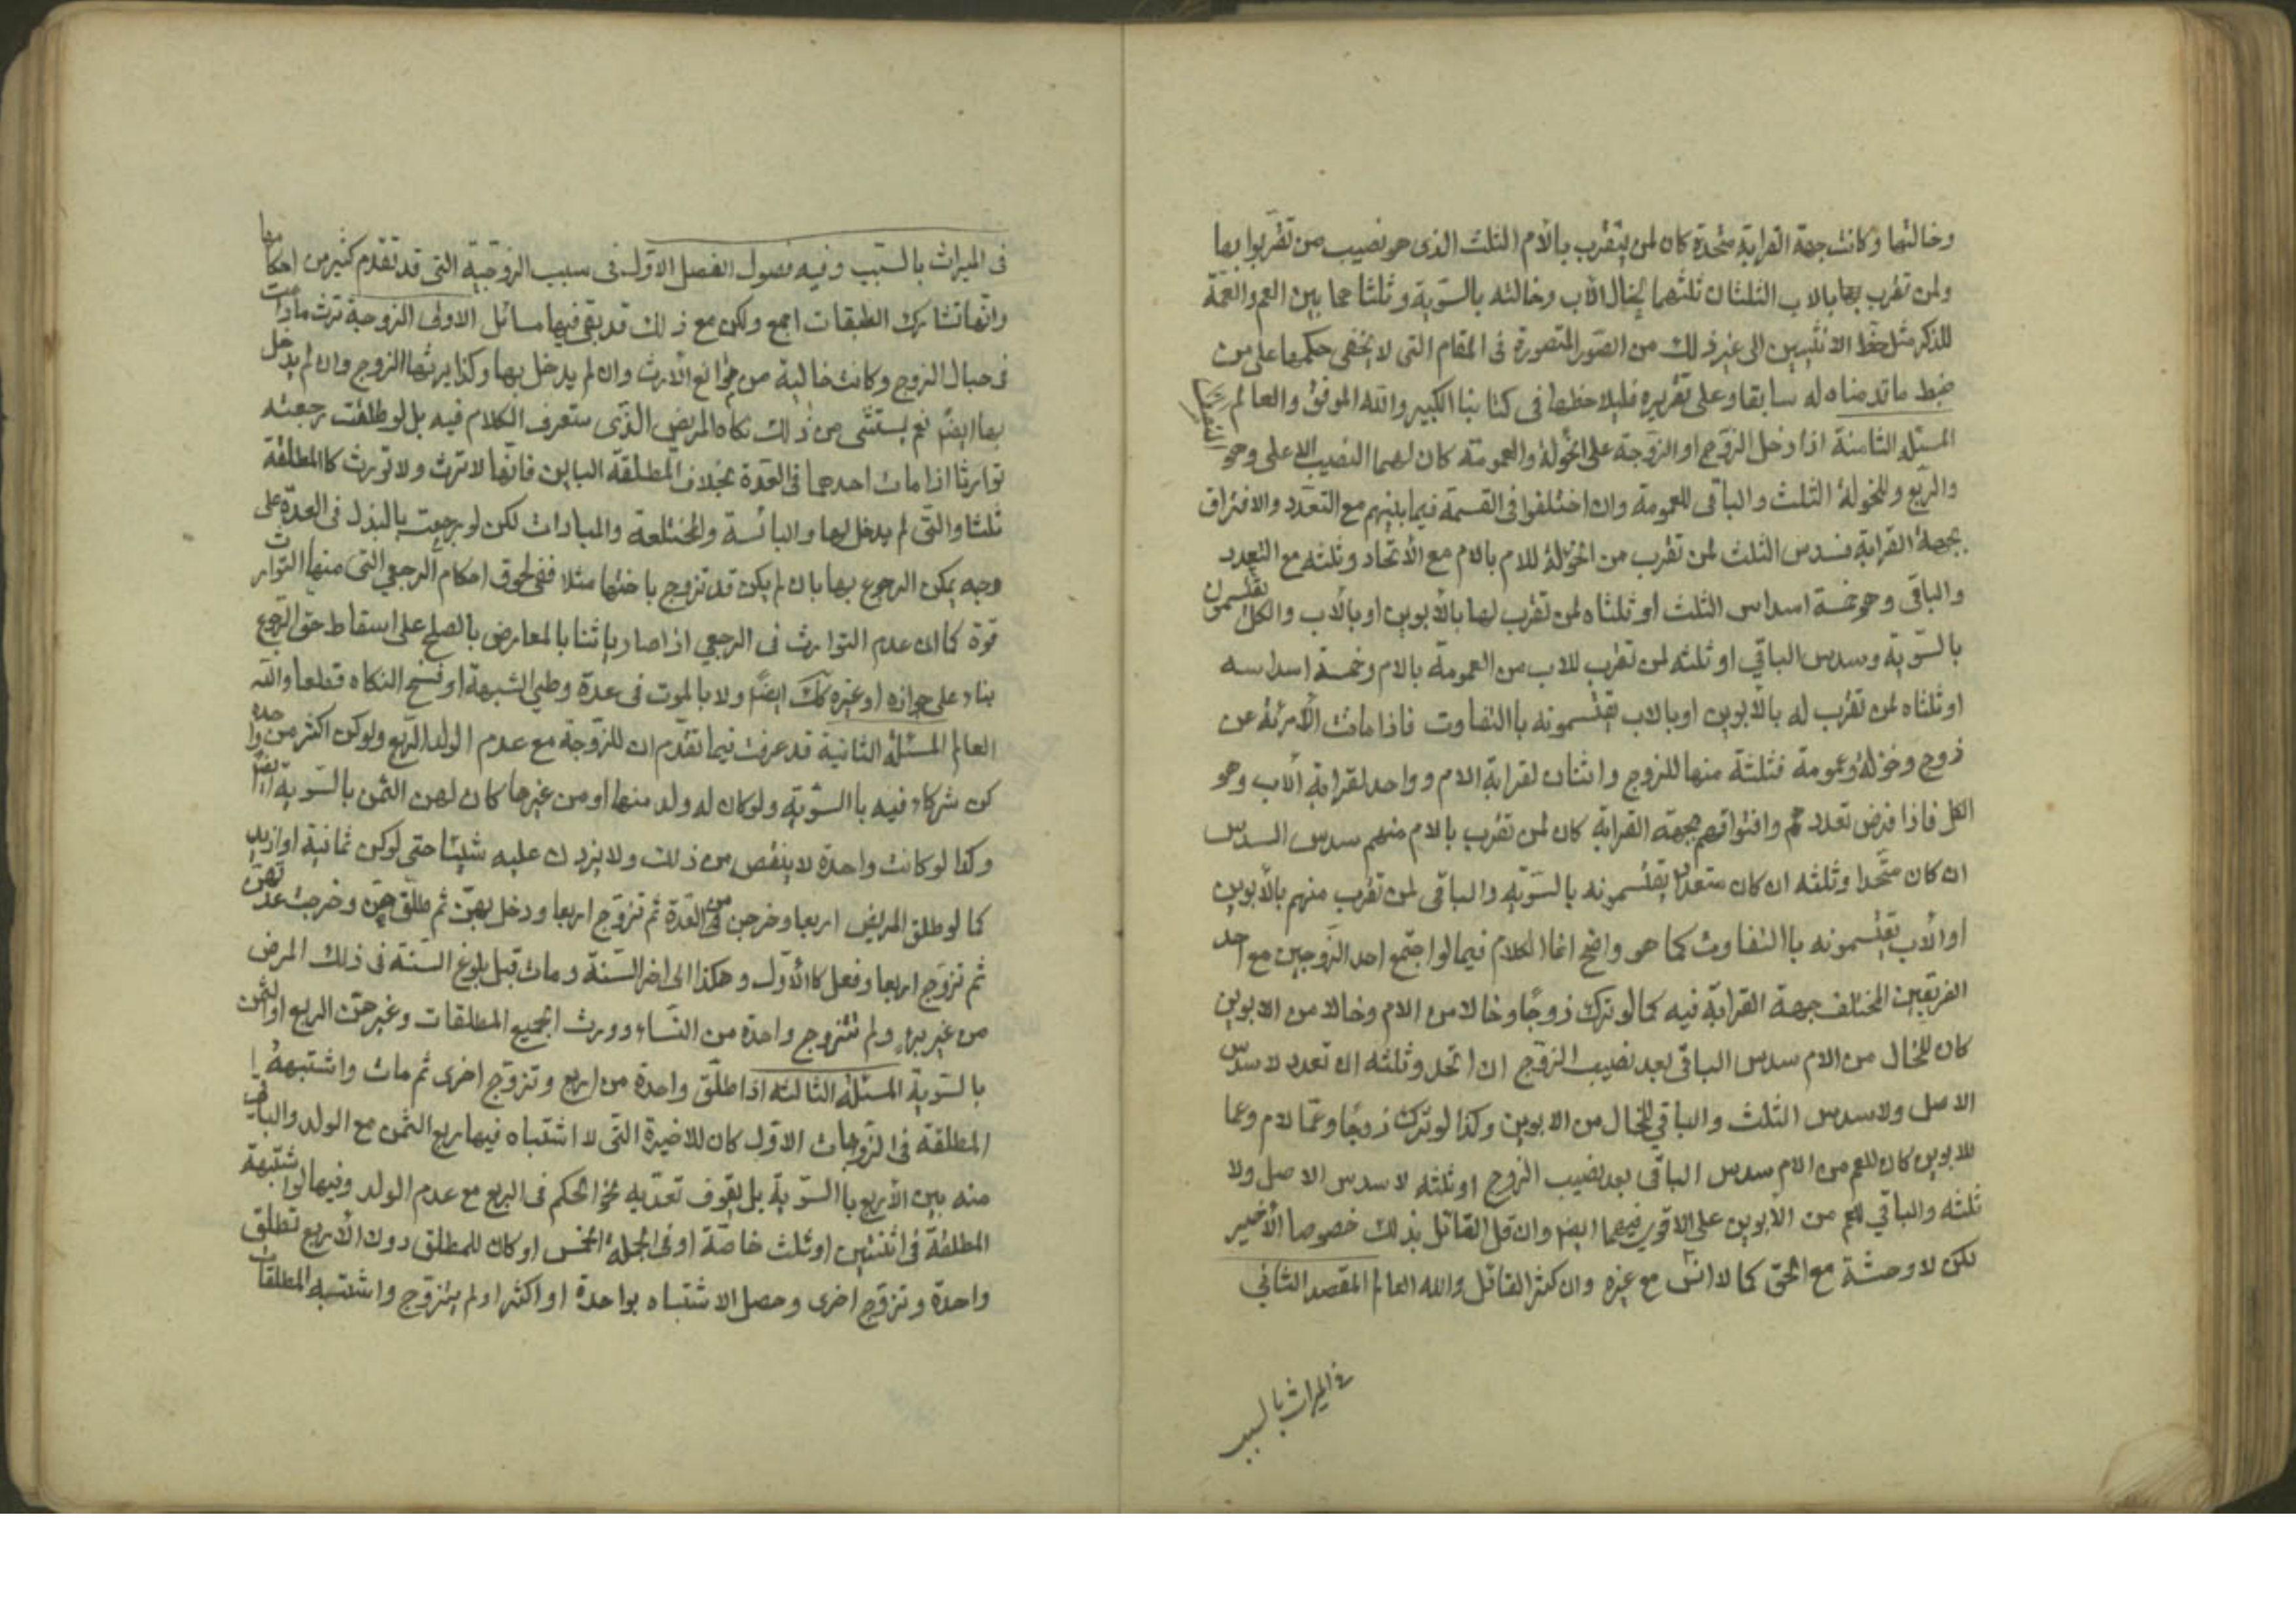 وخالتها وكانت جهة القرابة متحدة كان لمن يتقرب بالأم الثلث الذى هو نصيب من تقربوا بها
ولمن تقرب بها بالاب الثلثان ثلثهما لخال الأب وخالته بالسّوية وثلثاهما بين العم والعمّة
للذكر مثل حظ الانثيين الى غير ذلك من الصّور المتصورة فى المقام التى لا يخفى حكمها على من
ضبط ما قدمناه له سابقا وعلى تقريره فليلاحظها فى كتابنا الكبير والله الموفق والعالم
المسئلة الثامنة اذا دخل الزّوج او الزّوجة على الخولة والعمومة كان لهما النّصيب الاعلى وهو
والرّبع وللخولة الثلث والباقى للعمومة وان اختلفوا فى القسمة فيما بينهم مع التعدّد والافتراق
بجهة القرابة فسدس الثلث لمن تقرب من الخؤلة للام بالام مع الأتحاد وثلثه مع التعدد
والباقى وهو خمسة اسداس الثلث او ثلثاه لمن تقرب لها بالأبوين او بالأب والكل يقتسمون
بالسّوية وسدس الباقي او ثلثه لمن تقرب للاب من العمومة بالام وخمسة اسداسه
او ثلثاه لمن تقرب له بالأبوين او بالاب يقتسمونه باالتفاوت فاذا ماتت الأمرئة عن
زوج وخؤلة وعمومة فثلثة منها للزوج واثنان لقرابة الام وواحد لقرابة ألاب وهو
الكل فاذا فرض تعددهم وافتراقهم بجهة القرابة كان لمن تقرب بالام منهم سدس السدس
ان كان متّحدا وثلثه ان كان متعددا يقتسمونه بالسّويّة والباقى لمن تقرب منهم بالأبوين
او الأب يقتسمونه باالتفاوت كما هو واضح انما الكلام فيما لو اجتمع احد الزّوجين مع احد
الفريقين المختلف جهة القرابة فيه كما لو ترك زوجًا وخالا من الام وخالا من الابوين
كان للخال من الام سدس الباقى بعد نصيب الزوّج ان اتحد وثلثه ان تعدد لا سدس
الاصل ولا سدس الثلث والباقي للخال من الابوين وكذا لو ترك زوجًا وعمّا لام وعما
للابوين كان للعم من الام سدس الباقى بعد نصيب الزوج او ثلثه لا سدس الاصل ولا
ثلثه والباقي للعم من الأبوين على الاقوى فيهما ايضا وان قل القائل بذلك خصوصا الأخير
لكن لا وحشة مع الحق كما لا انس مع غيره وان كثر القائل والله العالم المقصد الثاني
فى الميراث بالسبب
فى الميراث بالسّبب وفيه فصول الفصل الاوّل فى سبب الزوجيّة التى قد تقدم كثير من احكامها
وانّها تشارك الطبقات اجمع ولكن مع ذلك قد بقى فيها مسائل الاولى الزوجة ترث مادامت
فى حبال الزوج وكانت خالية من موانع الأرث وان لم يدخل بها وكذا يرثها الزوج وان لم يدخل
بها ايضًا نعم يستثنى من ذلك نكاه المريض الذّى ستعرف الكلام فيه بل لو طلقت رجعيّة
توارثا اذا مات احدهما فى العّدة بخلاف المطلقة الباين فانّها لا ترث ولا تورث كاالمطلقة
ثلثا والتّى لم يدخل بها والبائسة والمختلعة والمبادات لكن لو رجعت بالبذل فى العدّة على
وجه يمكن الرجوع بها بان لم يكن قد تزوج باختها مثلا ففى لحوق احكام الرجعي التى منها التوارث
قوة كما ان عدم التوارث فى الرجعي اذا صار بائنا بالمعارض بالصلح على اسقاط حق الرجوع
بناء على جوازه او غيره كك ايضًا ولا بالموت فى عدة وطي الشبهة او فسخ النكاه قطعا والله
العالم المسئلة الثانية قد عرفت فيما تقدّم ان للزّوجة مع عدم الولد الرّبع ولو كن اكثر من واحدة
كن شركاء فيه باالسّويّة ولو كان له ولد منها او من غيرها كان لهن الثمن بالسّوية ايضًا
وكذا لو كانت واحدة لا ينقص من ذلك ولا يزدن عليه شيئا حتى لو كن ثمانية او ازيد
كما لو طلق المريض اربعا وخرجن من العّدة ثم تزوّج اربعا ودخل بهنّ ثم طلّقهنّ وخرجت عدتهنّ
ثم تزوّج اربعا وفعل كاالأوّل وهكذا الى اخر السّنة ومات قبل بلوغ السّنة فى ذلك المرض
من غير برء ولم تتزوج واحدة من النّساء وورث الجميع المطلقات وغيرهنّ الربع او الثمن
بالسّوية المسئلة الثالثة اذا طلّق واحدة من اربع وتزوّج اخرى ثم مات واشتبهة
المطلقة فى الزّوجات الاول كان للاخيرة التى لا اشتباه فيها ربع الثمن مع الولد والباقى
منه بين الأربع باالسّوية بل يقوى تعدّيه نحو الحكم فى الربع مع عدم الولد وفيها لو اشتبهة
المطلقة فى اثنتين او ثلث خاصّة او فى الجملة الخمس او كان للمطلق دون الأربع تطلق
واحدة وتزوّج اخرى وحصل الاشتباه بواحدة او اكثر او لم يتزوج واشتبه المطلقات